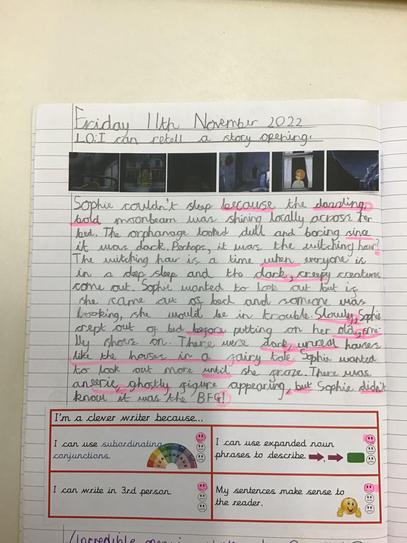 Friday 11th November 2022
LO: I can retell a story opening.
Sophie couldn't sleep because the dazzling,
bold moonbeam was shining locally across her
bed. The orphanage looked dull and boring since
it was dark. Perhaps, it was the witching hair?
The witching hair is a time when everyone is
in a dep sleep and the dark, creepy creatures
come out. Sophie wanted to look out but if
she came out of bed and someone was
looking, she would be in trouble. Slowly, Sophie
crept out of bed before putting on her old, sme-
lly shoes on. There were dark, unreal houses
like the houses in a fairy tale. Sophie wanted
to look out more until she froze. There was
an eerie, ghostly figure appearing, but Sophie didn't
know it was the BFG!
I'm a clever writer because...
I can use subordinating
conjunctions.
I can use expanded noun
phrases to describe
I can write in 3rd person.
My sentences make sense to
the reader.